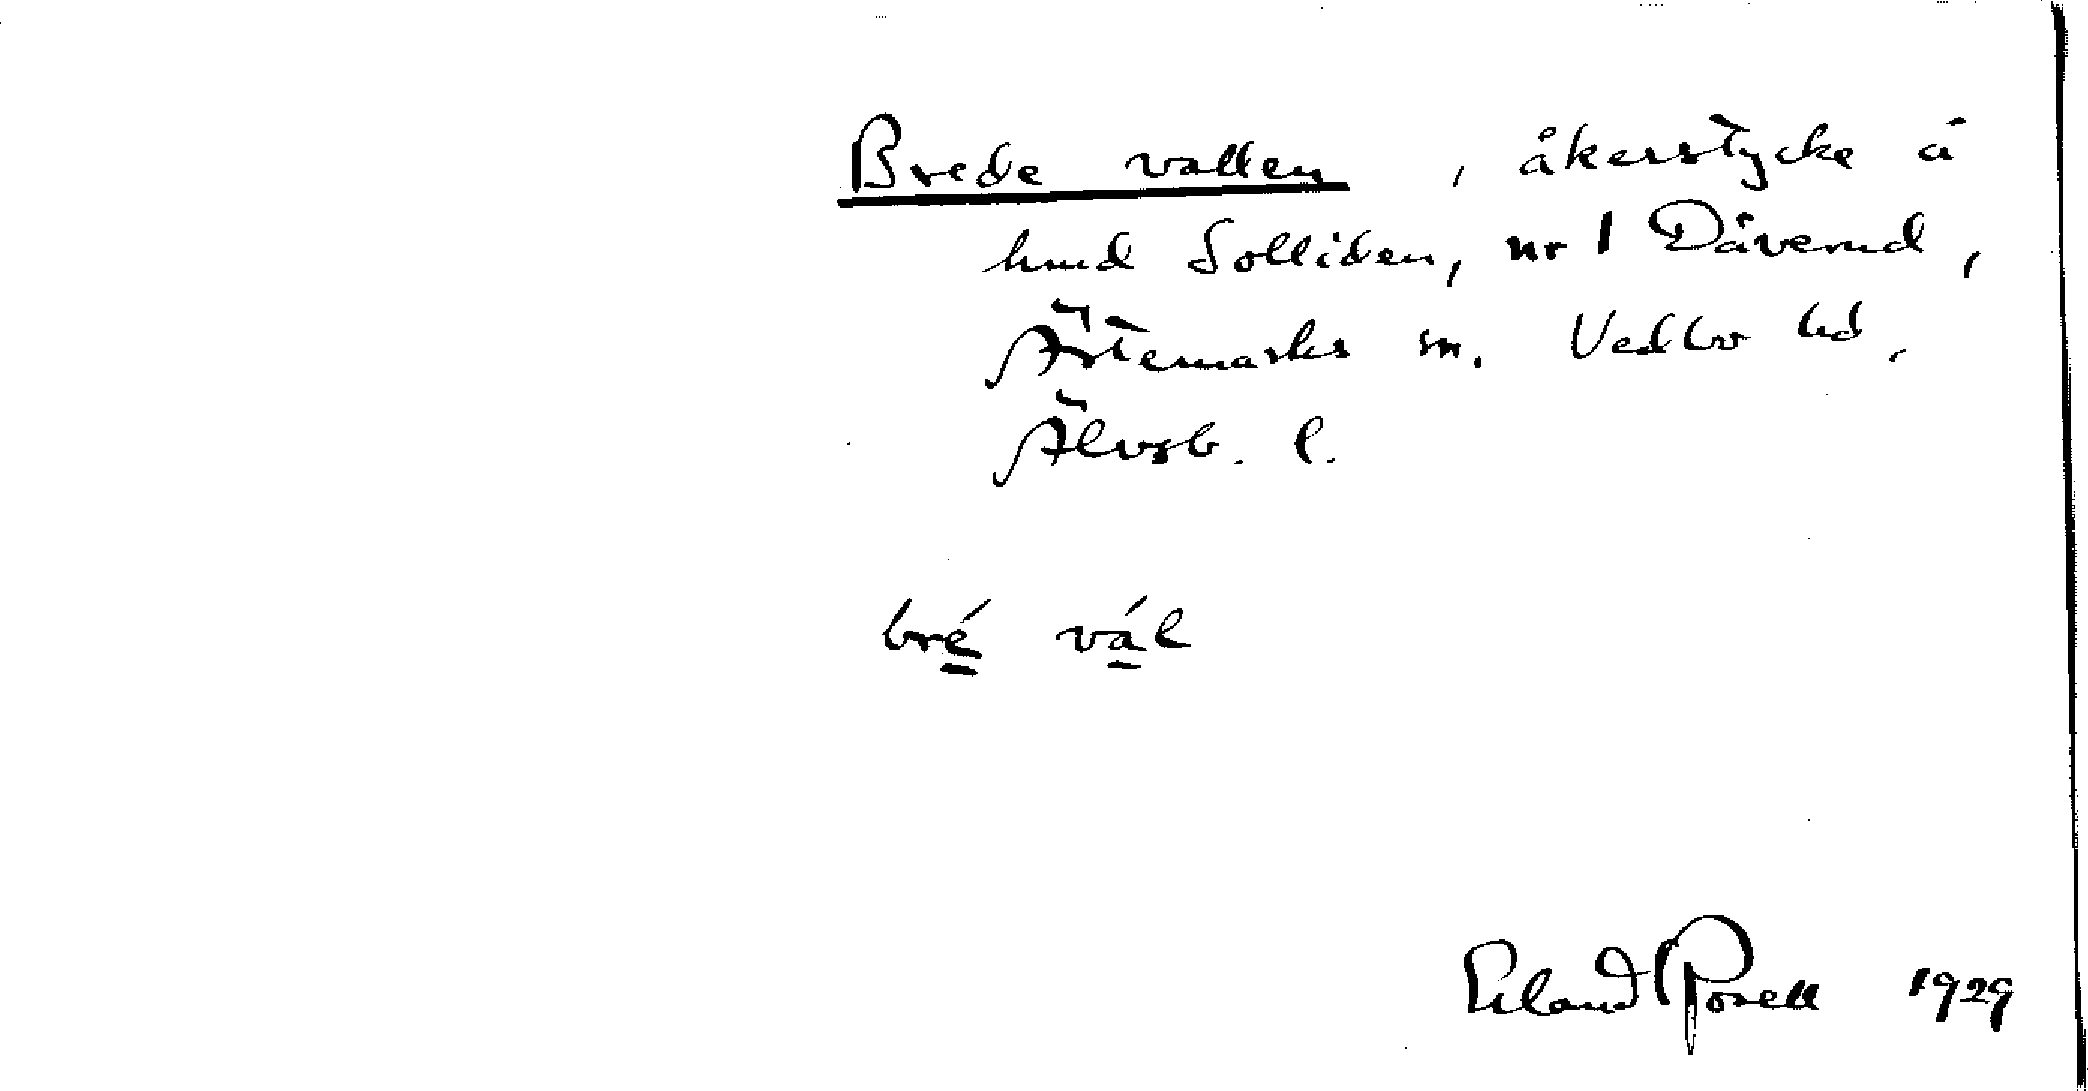 Brede vallen, åkerstycke å
hmd Solliden, nr 1 Dåverud,
Ärtemarks sn. Vedbo hd,
Älvsb. l.
bré vál
Erland Rosell 1929